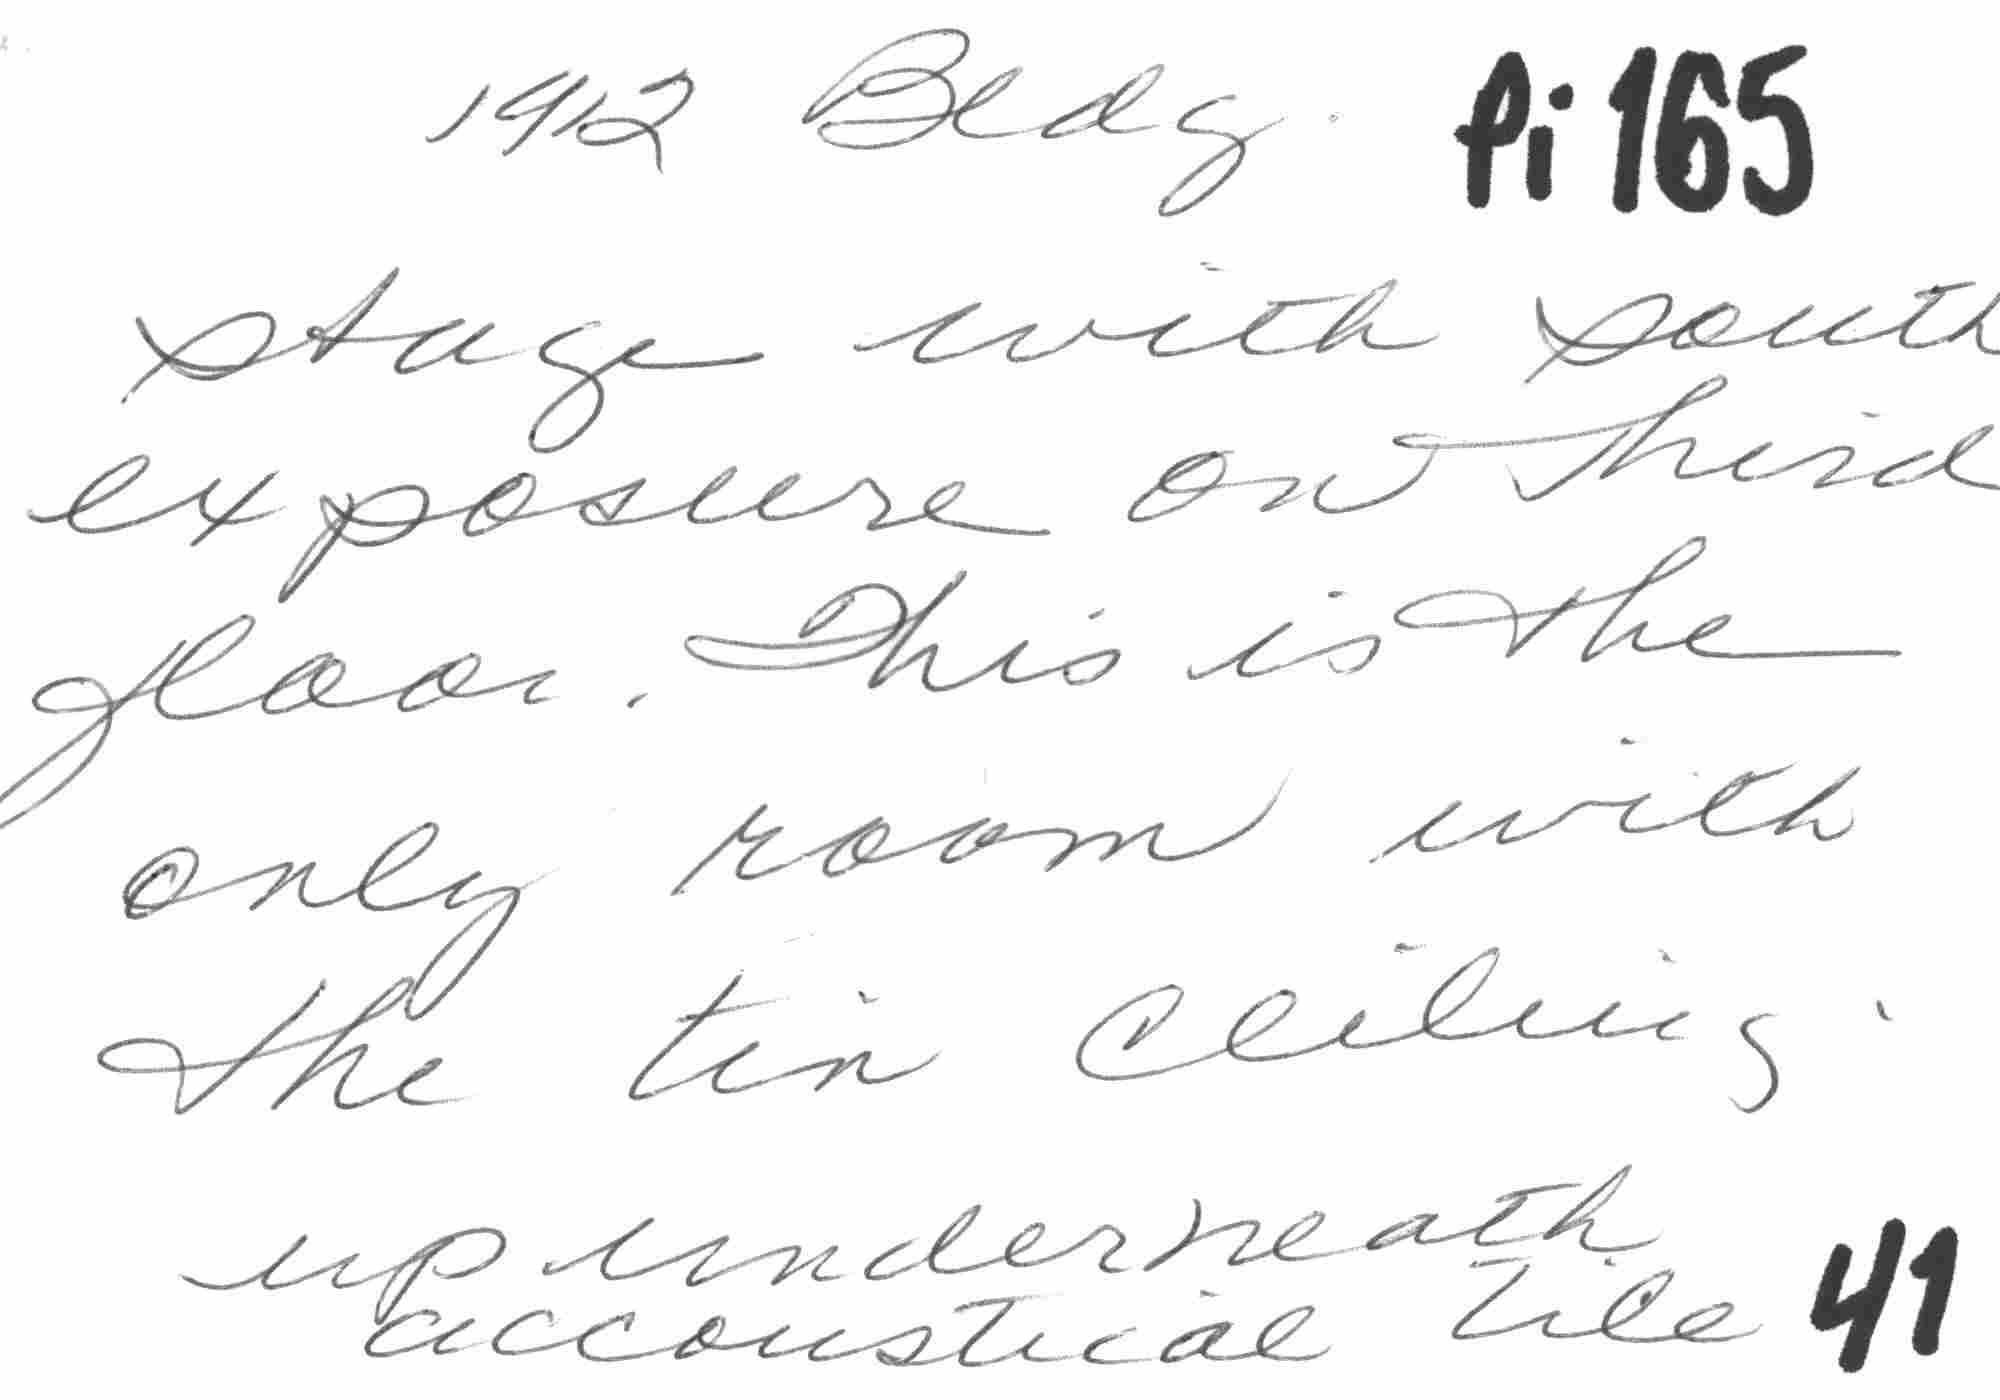 1912 Bldg. Pi 165
Stage with south
exposure on third
floor. This is the
only room with
the tin ceiling.
up underneath
accoustical tile 41